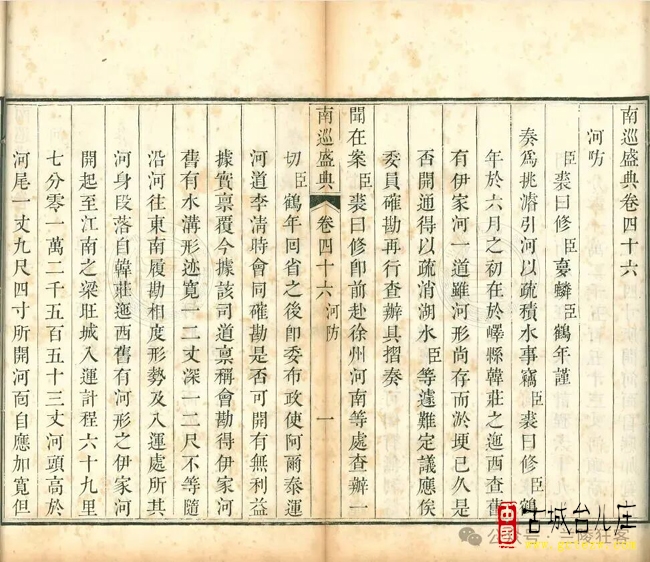 南巡盛典卷四十六
河防
臣裘曰修臣夢麟臣鶴年謹
奏爲挑濬引河以疏積水事竊臣裘曰修臣鶴
年於六月之初在於嶧縣韓莊之迤西查舊
有伊家河一道雖河形尚存而淤埂已久是
否開通得以疏消湖水臣等遽難定議應俟
委員確勘再行查辦具摺奏
聞在案臣裘曰修卽前赴徐州河南等處查辦一
南巡盛典
卷四十六
河防
一
切臣鶴年回省之後卽委布政使阿爾泰運
河道李清時會同確勘是否可開有無利益
據實稟覆今據該司道稟稱會勘得伊家河
舊有水溝形迹寬一二丈深一二尺不等隨
沿河往東南履勘相度形勢及入運處所其
河身段落自韓莊迤西舊有河形之伊家河
開起至江南之梁旺城入運計程六十九里
七分零一萬二千五百五十三丈河頭高於
河尾一丈九尺四寸所開河面自應加寬但
中國
古城台儿庄
公众号·兰陵狂客